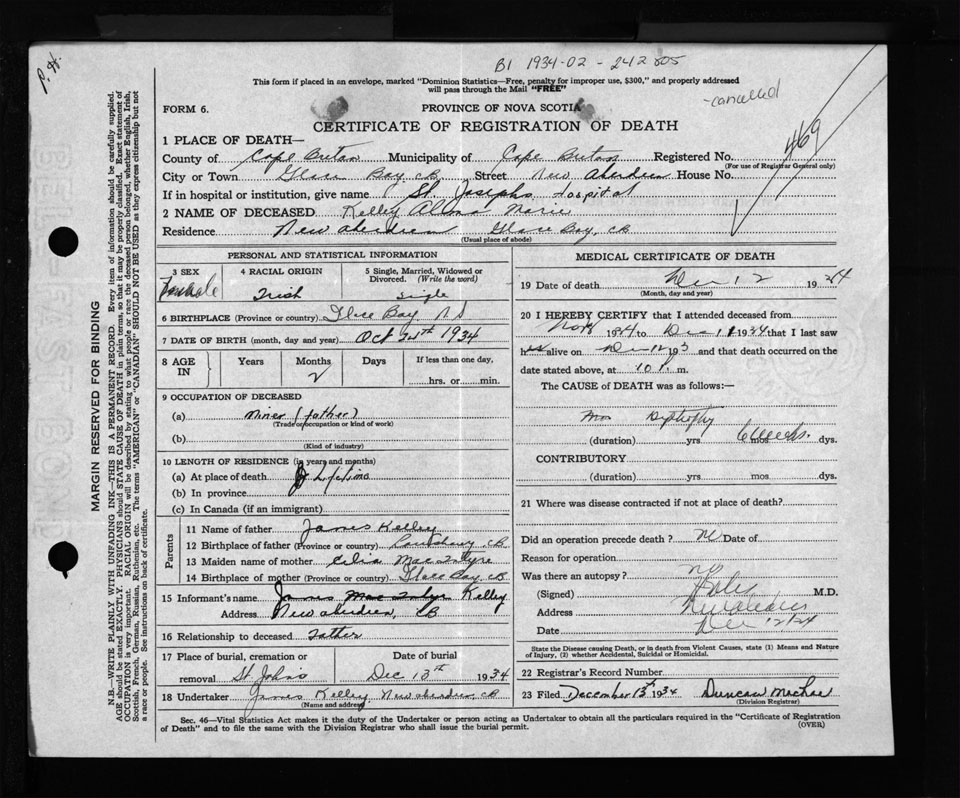 P. H.
B1 1934-02-242805
This form if placed in an envelope, marked "Dominion Statistics—Free, penalty for improper use, $300," and properly addressed
will pass through the Mail "FREE"
-cancelled
FORM 6.
PROVINCE OF NOVA SCOTIA
CERTIFICATE OF REGISTRATION OF DEATH
469
1 PLACE OF DEATH—
County of Cape Breton Municipality of Cape Breton Registered No.
(For use of Registrar General only)
City or Town Glace Bay, CB Street New Aberdeen House No.
If in hospital or institution, give name St. Josephs Hospital
2 NAME OF DECEASED Kelley Marie
Residence New Aberdeen Glace Bay, CB
(Usual place of abode)
PERSONAL AND STATISTICAL INFORMATION
3 SEX Female
4 RACIAL ORIGIN Irish
5 Single, Married, Widowed or Divorced. (Write the word) Single
6 BIRTHPLACE (Province or country) Glace Bay NS
7 DATE OF BIRTH (month, day and year) Oct 24th 1934
8 AGE IN Years Months 2 Days If less than one day, hrs. or min.
9 OCCUPATION OF DECEASED
(a) Miner (father)
(Trade or occupation or kind of work)
(b)
(Kind of industry)
10 LENGTH OF RESIDENCE (in years and months)
(a) At place of death Lifetime
(b) In province
(c) In Canada (if an immigrant)
Parents
11 Name of father James Kelley
12 Birthplace of father (Province or country) CB
13 Maiden name of mother Celia MacIntyre
14 Birthplace of mother (Province or country) Glace Bay, CB
15 Informant's name James MacIntyre Kelley
Address New Aberdeen, CB
16 Relationship to deceased Father
17 Place of burial, cremation or removal St Johns Date of burial Dec 13th 1934
18 Undertaker James Kelley New Aberdeen, CB
(Name and address)
MEDICAL CERTIFICATE OF DEATH
19 Date of death Dec 12 1934
(Month, day and year)
20 I HEREBY CERTIFY that I attended deceased from
Nov 1934 to Dec 11 1934 that I last saw
h alive on Dec 12 193 and that death occurred on the
date stated above, at 10 P. m.
The CAUSE of DEATH was as follows:—
(duration) yrs 6 weeks. mos dys.
CONTRIBUTORY
(duration) yrs mos dys.
21 Where was disease contracted if not at place of death?
Did an operation precede death? No Date of
Reason for operation
Was there an autopsy?
(Signed) M.D.
Address New Aberdeen
Date Dec 12/34
State the Disease causing Death, or in death from Violent Causes, state (1) Means and Nature
of Injury, (2) whether Accidental, Suicidal or Homicidal.
22 Registrar's Record Number
23 Filed December 13th 1934 Duncan
(Division Registrar)
Sec. 46—Vital Statistics Act makes it the duty of the Undertaker or person acting as Undertaker to obtain all the particulars required in the "Certificate of Registration
of Death" and to file the same with the Division Registrar who shall issue the burial permit.
(OVER)
MARGIN RESERVED FOR BINDING
N.B.—WRITE PLAINLY WITH UNFADING INK—THIS IS A PERMANENT RECORD. Every item of information should be carefully supplied.
AGE should be stated EXACTLY. PHYSICIANS should STATE CAUSE OF DEATH in plain terms, so that it may be properly classified. Exact statement of
OCCUPATION is very important. RACIAL ORIGIN will be described by stating to what people or race the deceased person belonged, whether English, Irish,
Scottish, French, German, Russian, Ruthenian, etc. The terms "AMERICAN" or "CANADIAN" SHOULD NOT BE USED as they express citizenship but not
a race or people. See instructions on back of certificate.